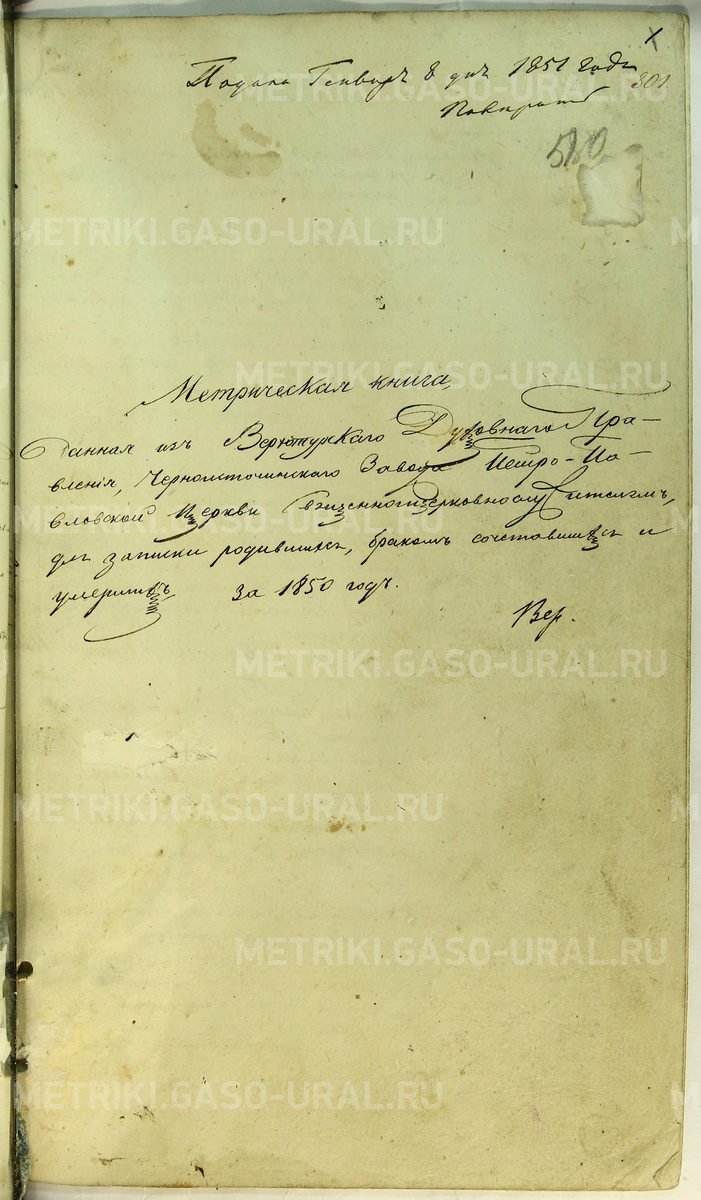 Подана Генваря 8 дня 1851 года
301
Метрическая книга,
Данная изъ Верхотурскаго Духовнаго Пра-
вленія, Черноисточинскаго Завода Петро-Па-
вловской Церкви Священноцерковнослужителямъ,
для записки родившихся, бракомъ сочетавшихся и
умершихъ за 1850 годъ.
Вер.
METRIKI.GASO-URAL.RU
METRIKI.GASO-URAL.RU
METRIKI.GASO-URAL.RU
METRIKI.GASO-URAL.RU
METRIKI.GASO-URAL.RU
METRIKI.GASO-URAL.RU
METRIKI.GASO-URAL.RU